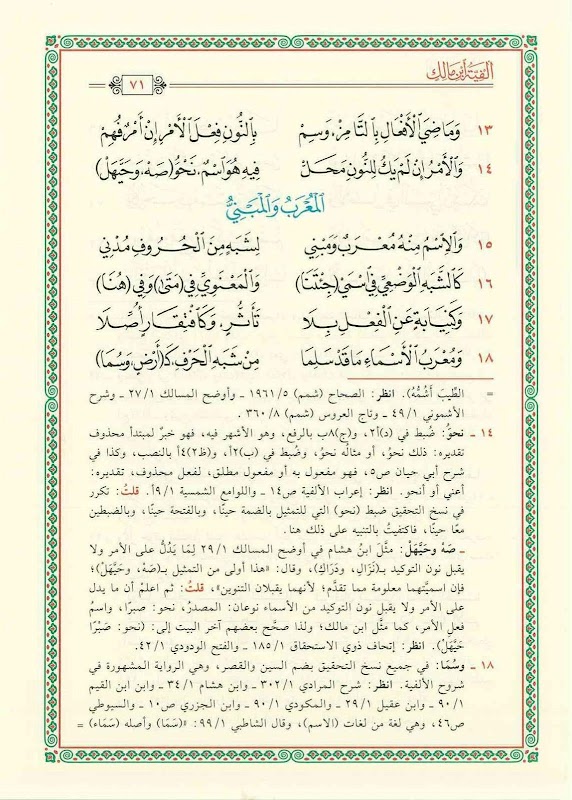 ألفية ابن مالك
٧١
١٣ وَمَاضِيَ الْأَفْعَالِ بِالتَّا مِزْ، وَسِمْ بِالنُّونِ فِعْلَ الْأَمْرِ إِنْ أَمْرٌ فُهِمْ
١٤ وَالْأَمْرُ إِنْ لَمْ يَكُ لِلنُّونِ مَحَلْ فِيهِ هُوَ اسْمٌ، نَحْوُ (صَهْ، وَحَيَّهَلْ)
الْمُعْرَبُ وَالْمَبْنِيُّ
١٥ وَالِاسْمُ مِنْهُ مُعْرَبٌ وَمَبْنِي لِشَبَهٍ مِنَ الْحُرُوفِ مُدْنِي
١٦ كَالشَّبَهِ الْوَضْعِيِّ فِي اسْمَيْ (جِئْتَنَا) وَالْمَعْنَوِيِّ فِي (مَتَى) وَفِي (هُنَا)
١٧ وَكَنِيَابَةٍ عَنِ الْفِعْلِ بِلَا تَأَثُّرٍ، وَكَافْتِقَارٍ أُصِّلَا
١٨ وَمُعْرَبُ الْأَسْمَاءِ مَا قَدْ سَلِمَا مِنْ شَبَهِ الْحَرْفِ كَـ(أَرْضٍ، وَسُمَا)
= الطِّيبَ أَشُمُّهُ). انظر: الصحاح (شمم) ١٩٦١/٥ ـ وأوضح المسالك ٢٧/١ ـ وشرح
الأشموني ٤٩/١ ـ وتاج العروس (شمم) ٣٦٠/٨.
١٤ ـ نحوُ: ضُبط في (د)٢أ، و(ج)٨ب بالرفع، وهو الأشهر فيه، فهو خبرٌ لمبتدأ محذوف
تقديره: ذلك نحوُ، أو مثالُه نحوُ، وضُبط في (ب)٢أ، و(ظ٢)٤أ بالنصب، وكذا في
شرح أبي حيان ص٥، فهو مفعول به أو مفعول مطلق، لفعل محذوف، تقديره:
أعني أو أنحو. انظر: إعراب الألفية ص١٤ ـ واللوامع الشمسية ٩/١أ. قلتُ: تكرر
في نسخ التحقيق ضبط (نحو) التي للتمثيل بالضمة حينًا، وبالفتحة حينًا، وبالضبطين
معًا حينًا، فاكتفيتُ بالتنبيه على ذلك هنا.
ـ صَهْ وحَيَّهَلْ: مثَّلَ ابنُ هشام في أوضح المسالك ٢٩/١ لِمَا يَدُلُّ على الأمر ولا
يقبل نون التوكيد بـ(نَزَالِ، ودَرَاكِ)، وقال: «هذا أولى من التمثيل بـ(صَهْ، وحَيَّهَلْ)؛
فإن اسميَّتهما معلومة مما تقدَّم؛ لأنهما يقبلان التنوين»، قلتُ: ثم اعلمْ أن ما يدل
على الأمر ولا يقبل نون التوكيد من الأسماء نوعان: المصدرُ، نحو: صبرًا، واسمُ
فعل الأمر، كما مثَّل ابن مالك؛ ولذا صحَّح بعضهم آخر البيت إلى: (نحو: صَبْرًا
حَيَّهَلْ). انظر: إتحاف ذوي الاستحقاق ١٨٥/١ ـ والفتح الودودي ٤٢/١.
١٨ ـ وسُمَا: في جميع نسخ التحقيق بضم السين والقصر، وهي الرواية المشهورة في
شروح الألفية. انظر: شرح المرادي ٣٠٢/١ ـ وابن هشام ٣٤/١ ـ وابن ابن القيم
٩٠/١ ـ وابن عقيل ٢٩/١ ـ والمكودي ٩٠/١ ـ وابن الجزري ص١٠ ـ والسيوطي
ص٤٦، وهي لغة من لغات (الاسم)، وقال الشاطبي ٩٩/١: «(سُمَا) وأصله (سَمَاء) =